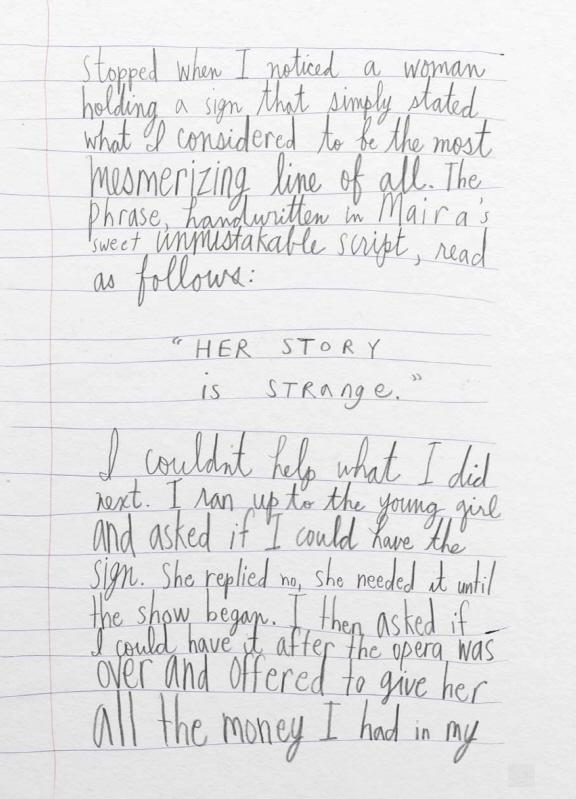 Stopped when I noticed a woman
holding a sign that simply stated
what I considered to be the most
mesmerizing line of all. The
phrase, handwritten in Maira's
sweet unmistakable script, read
as follows:
"HER STORY
is STRAnge."
I couldn't help what I did
next. I ran up to the young girl
and asked if I could have the
sign. She replied no, she needed it until
the show began. I then asked if
I could have it after the opera was
over and offered to give her
all the money I had in my